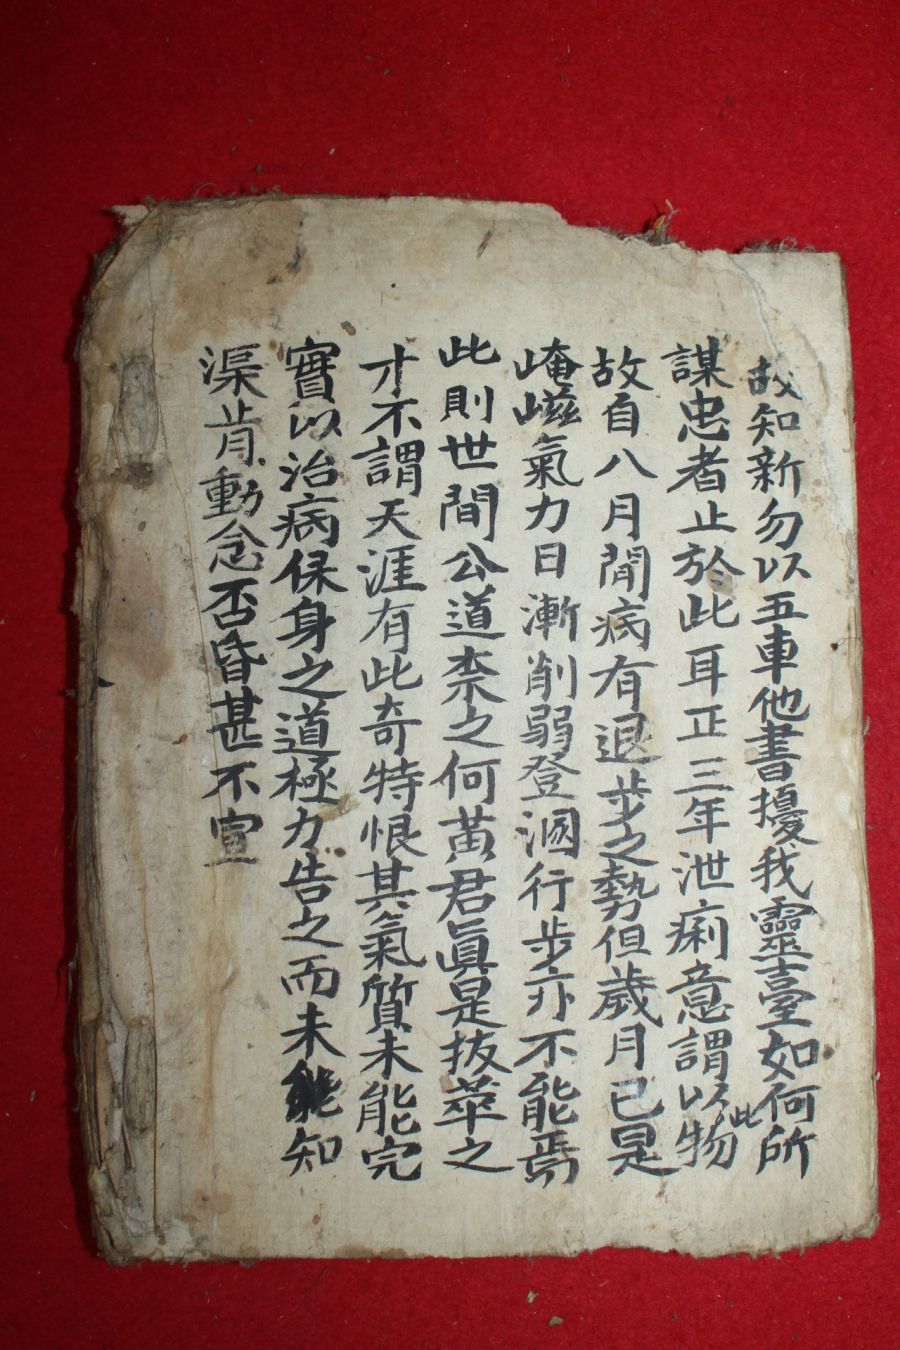 故知新勿以五車他書擾我靈臺如何所
謀忠者止於此耳正三年泄痢意謂以此物
故自八月間病有退步之勢但歲月已是
崦嵫氣力日漸削弱登溷行步亦不能焉
此則世間公道柰之何黃君眞是拔萃之
才不謂天涯有此奇特恨其氣質未能完
實以治病保身之道極力告之而未能知
渠肯動念否昏甚不宣